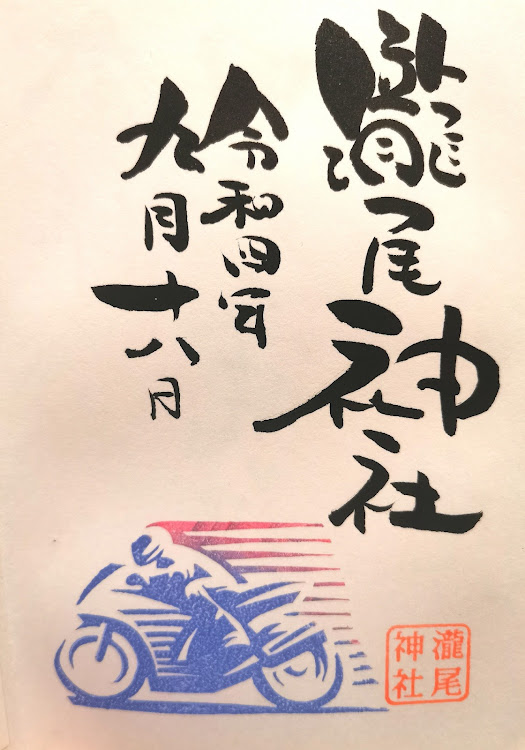 瀧尾神社
令和四年
九月十八日
瀧尾
神社